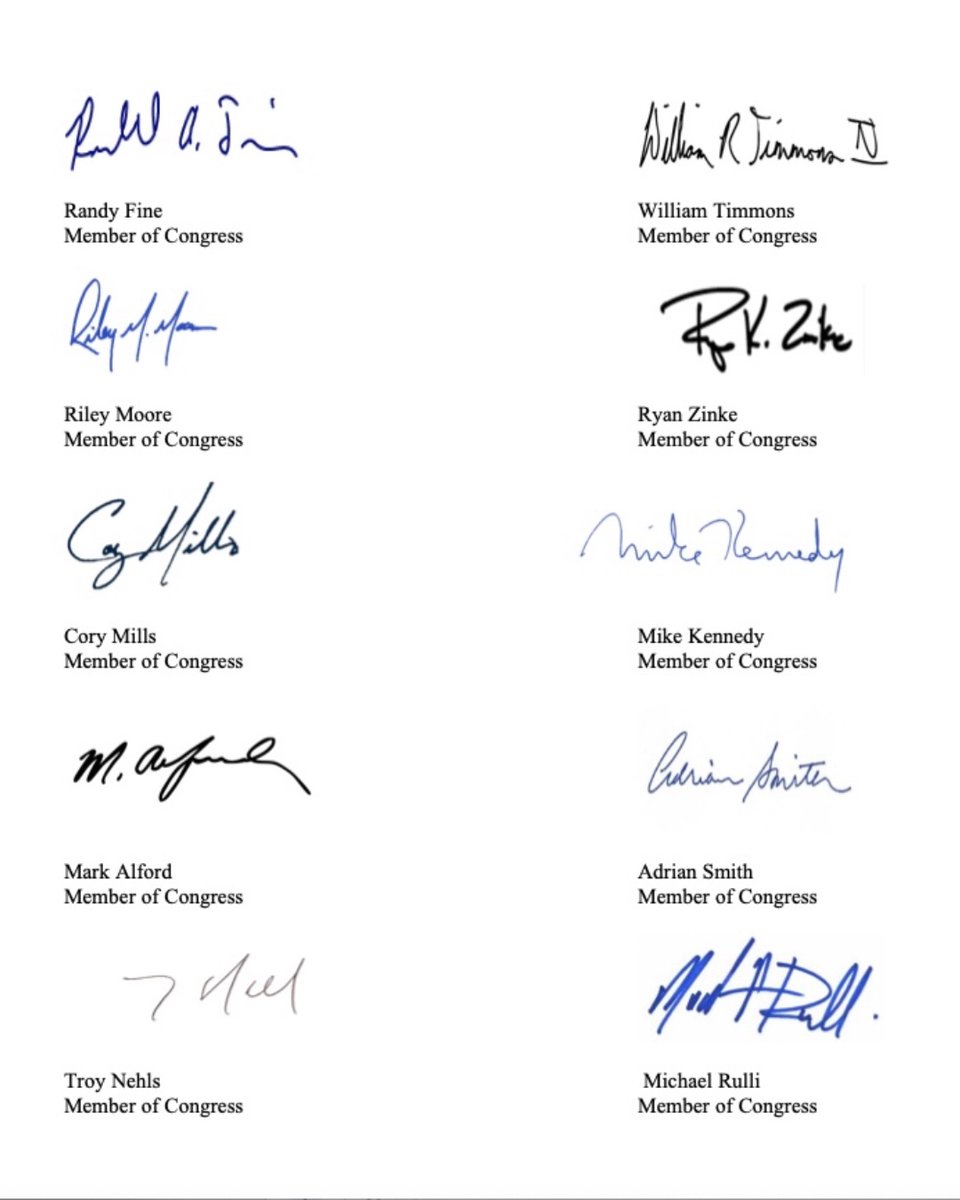 Randall A. Fine
William R Timmons IV
Randy Fine
William Timmons
Member of Congress
Member of Congress
Riley M. Moore
Ryan K. Zinke
Riley Moore
Ryan Zinke
Member of Congress
Member of Congress
Cory Mills
Mike Kennedy
Cory Mills
Mike Kennedy
Member of Congress
Member of Congress
M. Alford
Adrian Smith
Mark Alford
Adrian Smith
Member of Congress
Member of Congress
Troy Nehls
Michael Rulli
Member of Congress
Member of Congress